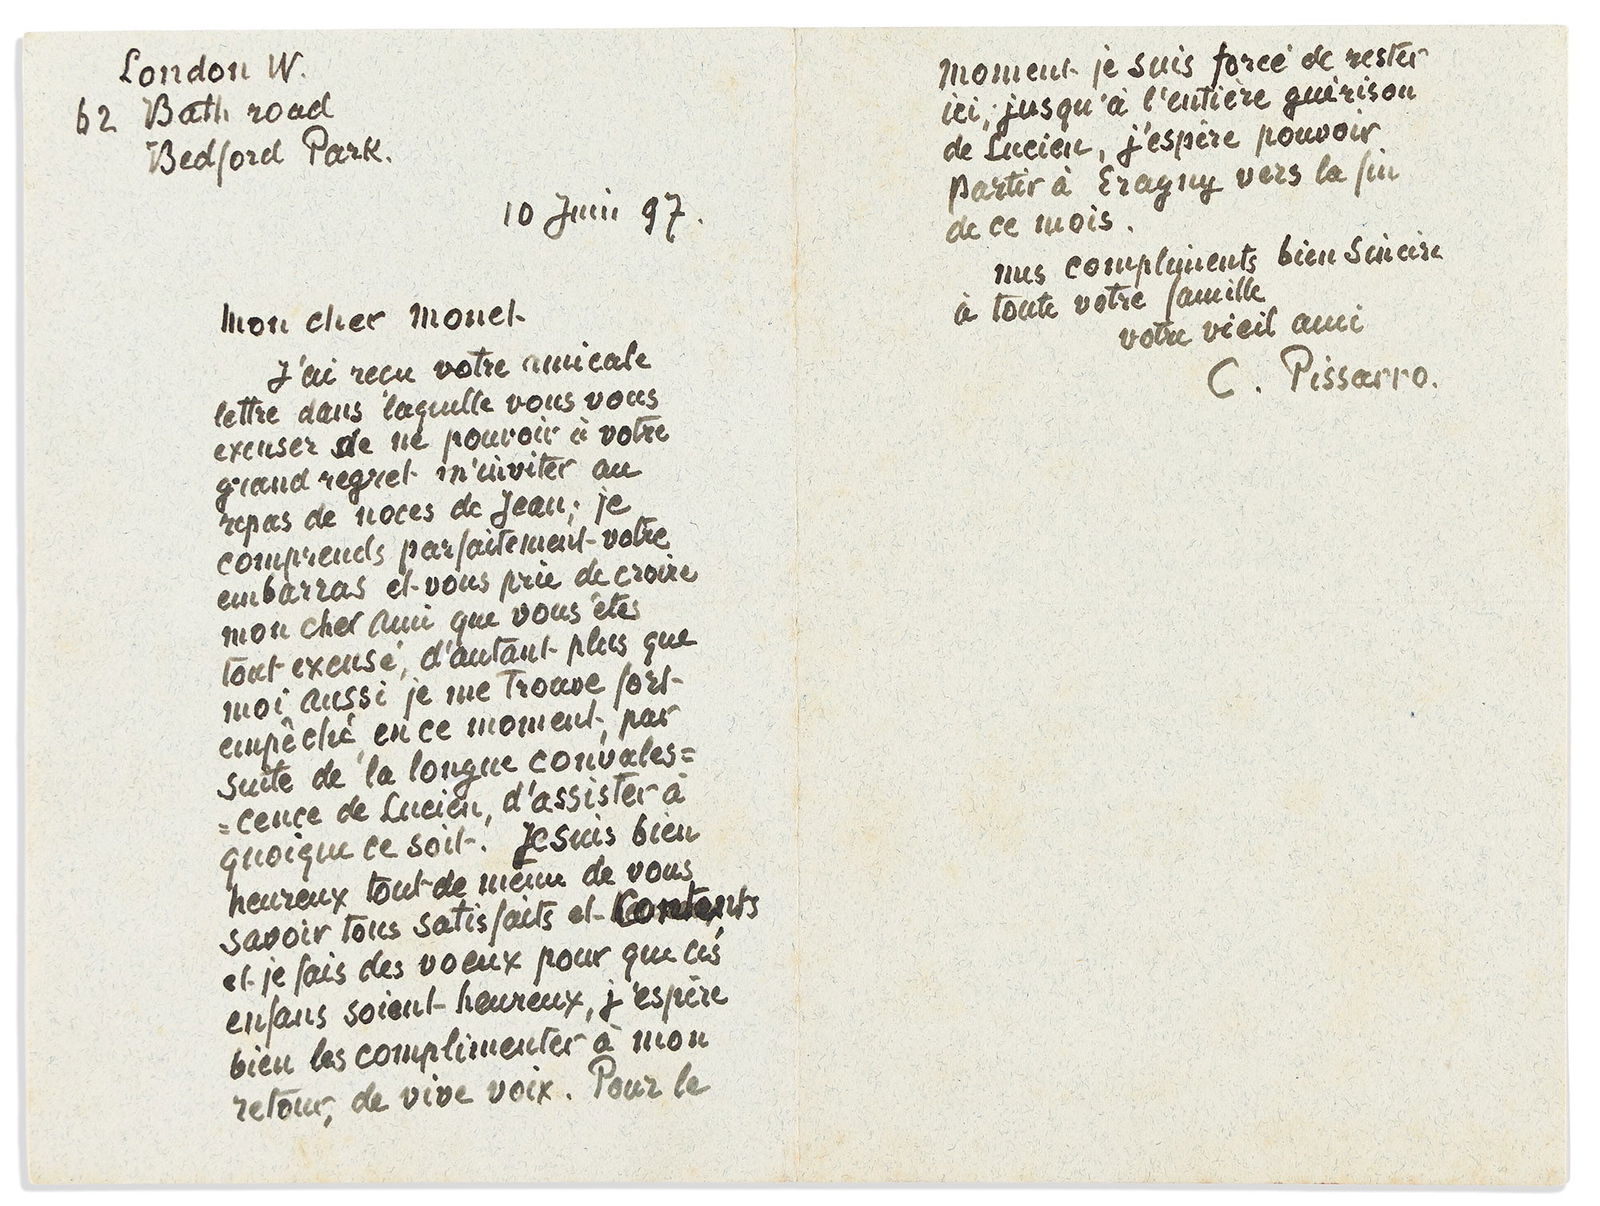 London W.
62 Bath road
Bedford Park.
10 Juin 97.
Mon cher Monet
J'ai reçu votre amicale
lettre dans laquelle vous vous
excuser de ne pouvoir à votre
grand regret m'inviter au
repas de noces de Jean; je
comprends parfaitement votre
embarras et vous prie de croire
mon cher ami que vous êtes
tout excusé, d'autant plus que
moi aussi je me trouve fort
empêché, en ce moment, par
suite de la longue convales=
=cence de Lucien, d'assister à
quoique ce soit. Je suis bien
heureux tout de même de vous
savoir tous satisfaits et contents
et je fais des voeux pour que ces
enfans soient heureux, j'espère
bien les complimenter à mon
retour, de vive voix. Pour le
moment je suis forcé de rester
ici, jusqu'à l'entière guérison
de Lucien, j'espère pouvoir
partir à Eragny vers la fin
de ce mois.
mes compliments bien sincère
à toute votre famille
votre vieil ami
C. Pissarro.